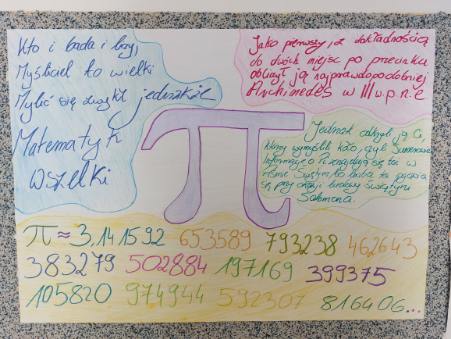 Kto i bada i liczy
Myśliciel to wielki
Mylić się zwykł jednakże
Matematyk
Wszelki
Jako pierwszy z dokładnością
do dwóch miejsc po przecinku
obliczył ją najprawdopodobniej
Archimedes w III w p.n.e
π
Jednak odkryli ją Ci,
którzy wymyślili koło, czyli Sumerowie
Informacje o
piśmie Świętym
przy okazji budowy świątyni
Salomona.
π ≈ 3,141592 653589 793238 462643
383279 502884 197169 399375
105820 974944 592307 816406...